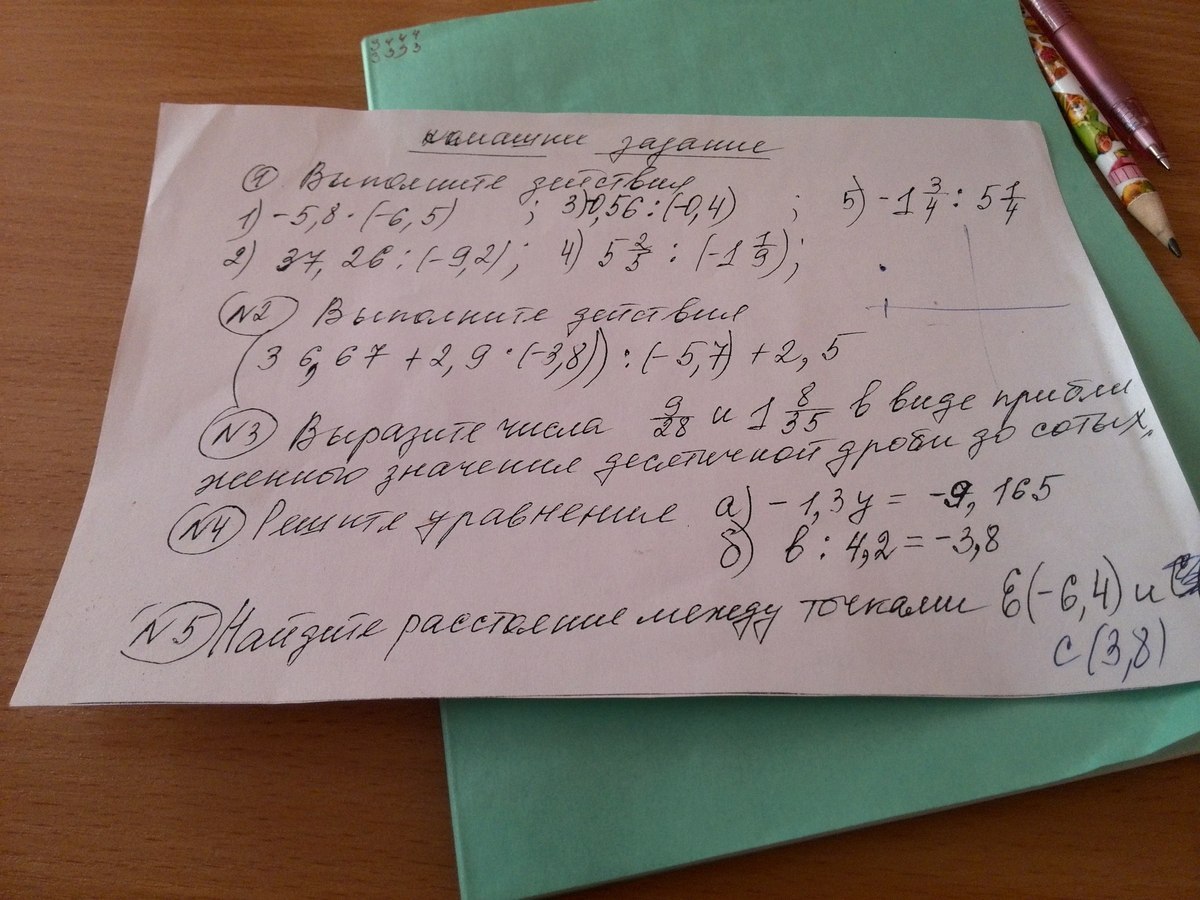 домашни задание
1 Выполните действия
1) -5,8 · (-6,5) ; 3) 0,56 : (-0,4) ; 5) -1 3/4 : 5 1/4
2) 37,26 : (-9,2) ; 4) 5 2/5 : (-1 1/9) ;
N2 Выполните действия
(36,67 + 2,9 · (-3,8)) : (-5,7) + 2,5
N3 Выразите числа 9/28 и 1 8/35 в виде прибли
женного значения десятичной дроби до сотых.
N4 Решите уравнения а) -1,3y = -9,165
б) в : 4,2 = -3,8
N5 Найдите расстояние между точками Е(-6,4) и
С(3,8)